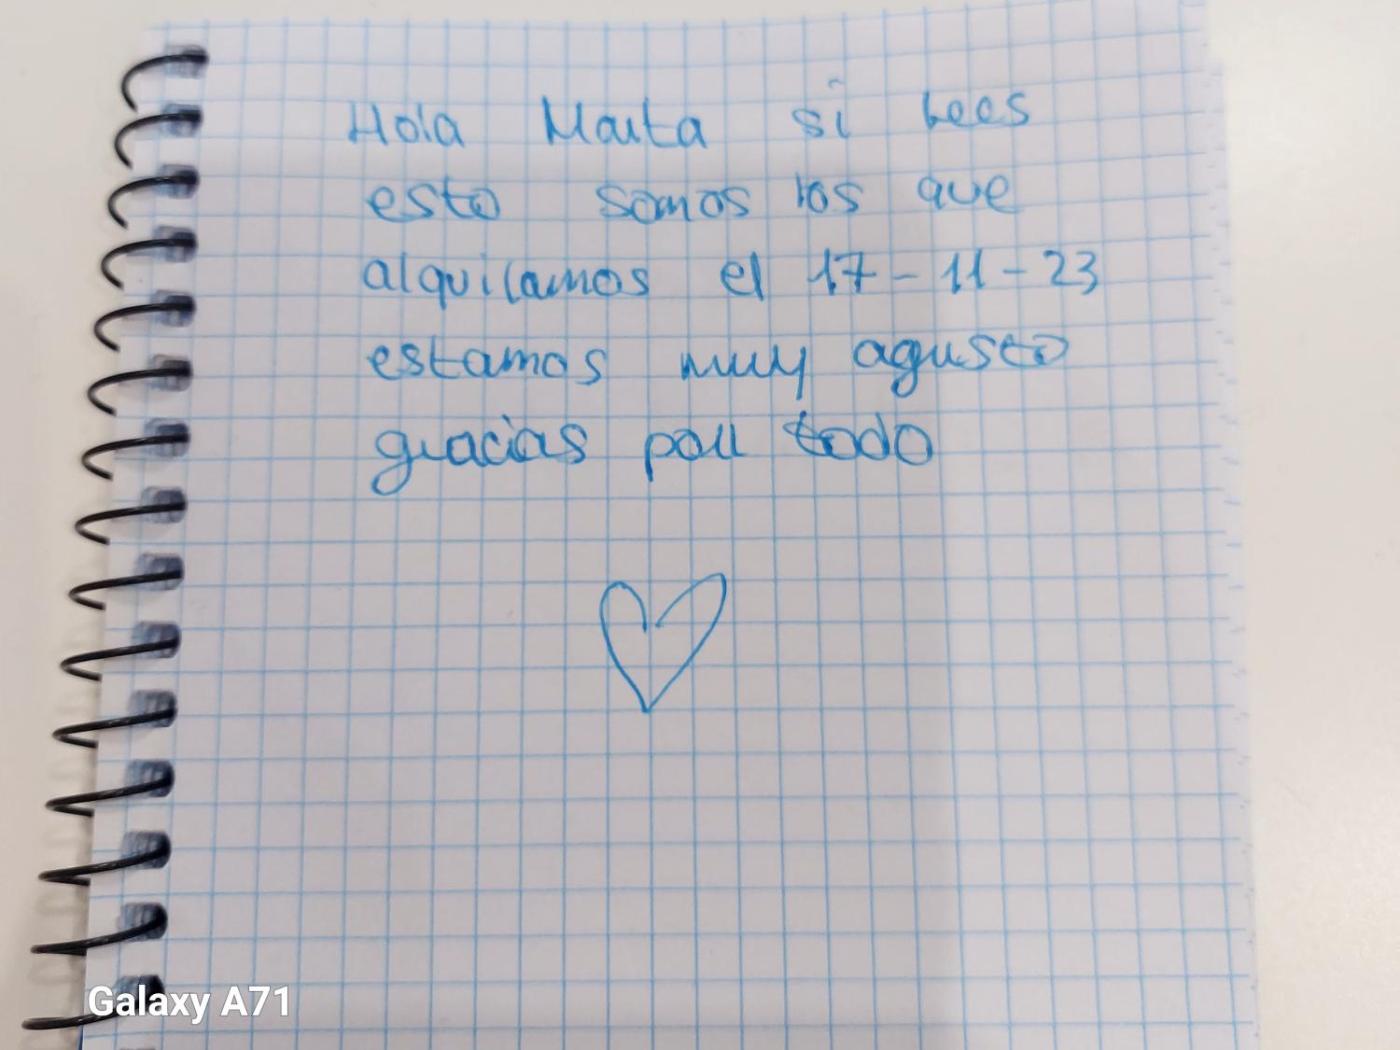 Hola Marta si lees
esto somos los que
alquilamos el 17-11-23
estamos muy agusto
gracias por todo
Galaxy A71